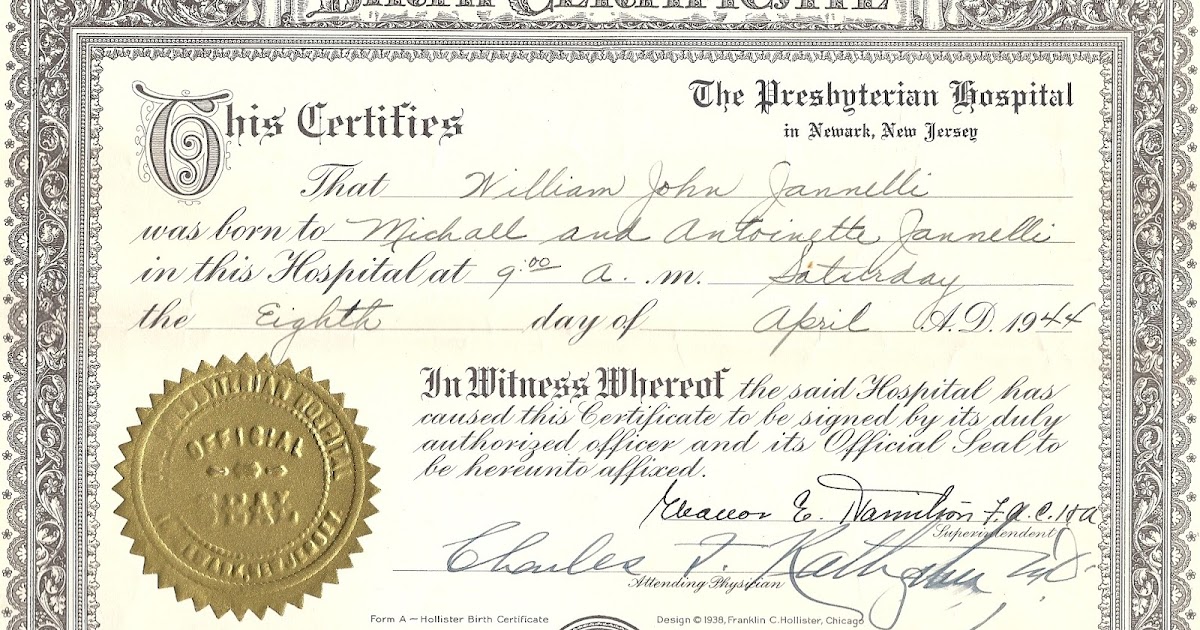 Birth Certificate
This Certifies
The Presbyterian Hospital
in Newark, New Jersey
That William John Jannelli
was born to Michael and Antoinette Jannelli
in this Hospital at 9:00 A. .m. Saturday
the Eighth day of April A.D. 1944
In Witness Whereof the said Hospital has
caused this Certificate to be signed by its duly
authorized officer and its Official Seal to
be hereunto affixed.
OFFICIAL
SEAL
Eleanor E. Hamilton F.A.C.H.A
Superintendent
Charles F.
Attending Physician
Form A — Hollister Birth Certificate
Design © 1938, Franklin C. Hollister, Chicago